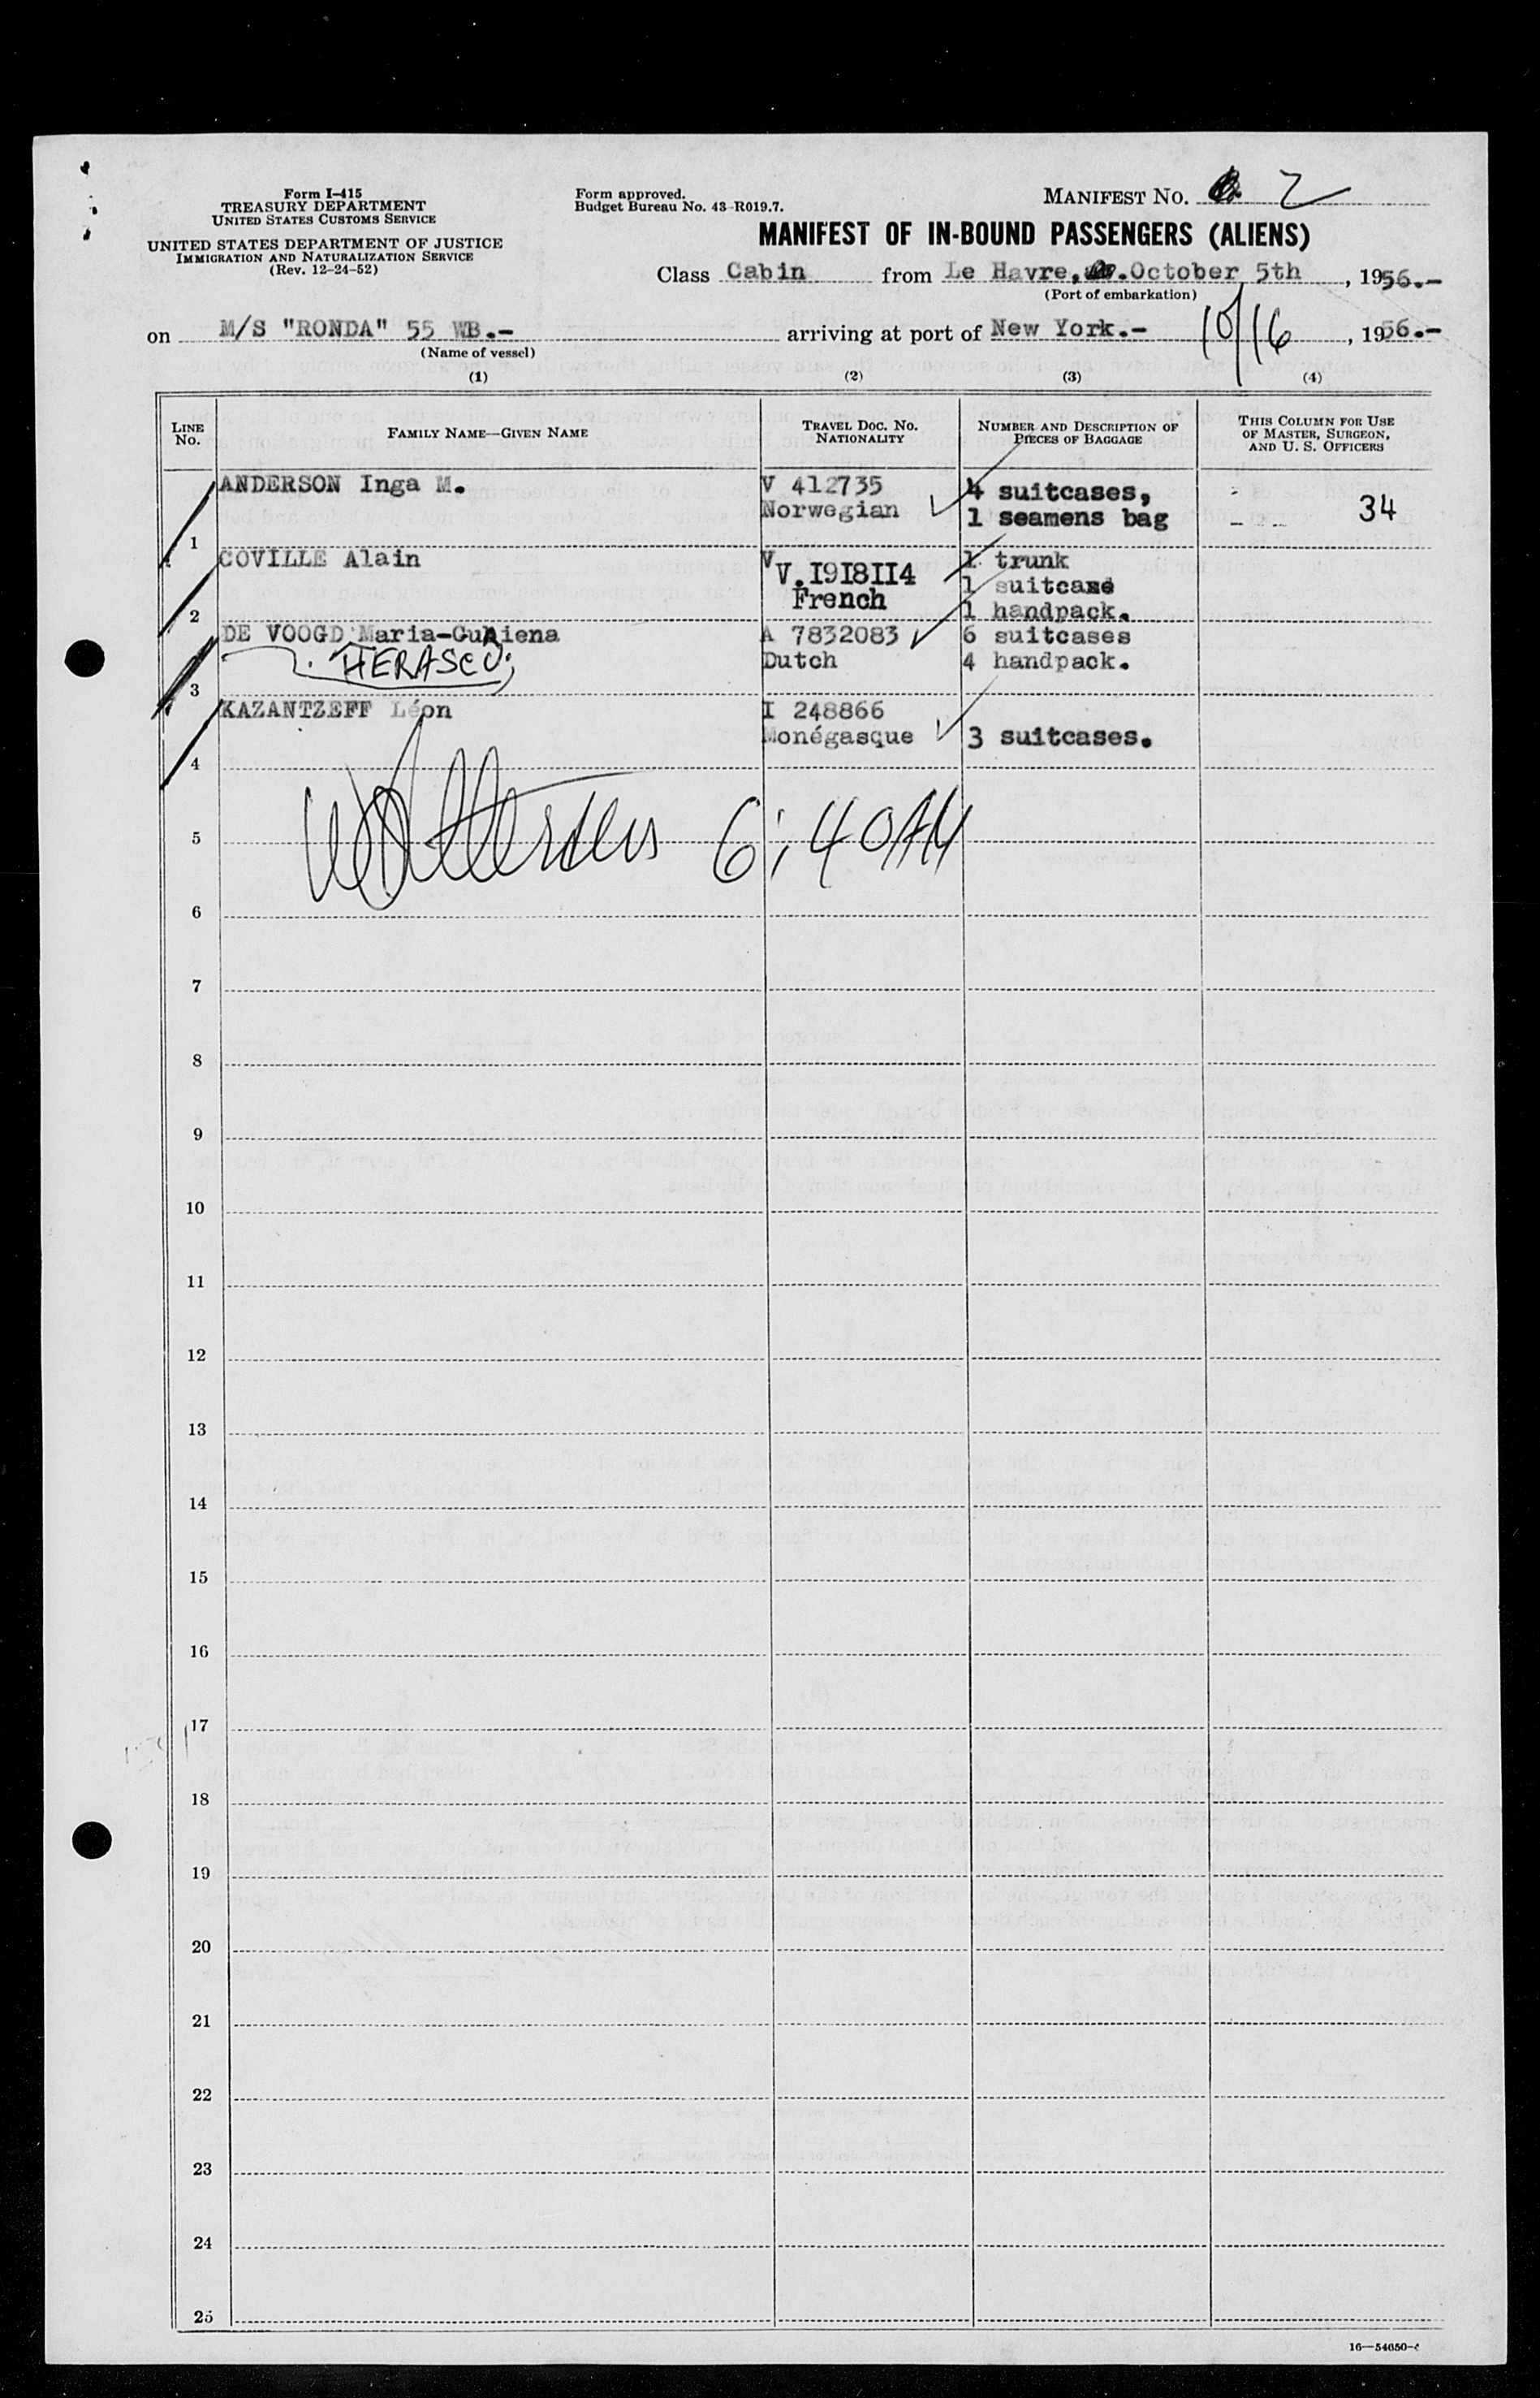 Form I-415
TREASURY DEPARTMENT
UNITED STATES CUSTOMS SERVICE
UNITED STATES DEPARTMENT OF JUSTICE
IMMIGRATION AND NATURALIZATION SERVICE
(Rev. 12-24-52)
Form approved.
Budget Bureau No. 43-R019.7.
MANIFEST No. 2
MANIFEST OF IN-BOUND PASSENGERS (ALIENS)
Class Cabin from Le Havre, October 5th, 1956.-
(Port of embarkation)
on M/S "RONDA" 55 WB.- arriving at port of New York.- 10/16, 1956.-
(Name of vessel)
(1) (2) (3) (4)
LINE No. FAMILY NAME—GIVEN NAME TRAVEL DOC. NO. NATIONALITY NUMBER AND DESCRIPTION OF PIECES OF BAGGAGE THIS COLUMN FOR USE OF MASTER, SURGEON, AND U. S. OFFICERS
ANDERSON Inga M. V 412735 4 suitcases,
Norwegian 1 seamens bag 34
1
COVILLE Alain V V.I9I8II4 1 trunk
French 1 suitcase
2 1 handpack.
DE VOOGD Maria-GuRiena A 7832083 6 suitcases
HERASCO; Dutch 4 handpack.
3
KAZANTZEFF Léon I 248866
Monégasque 3 suitcases.
4
5 6:40AM
6
7
8
9
10
11
12
13
14
15
16
17
18
19
20
21
22
23
24
25